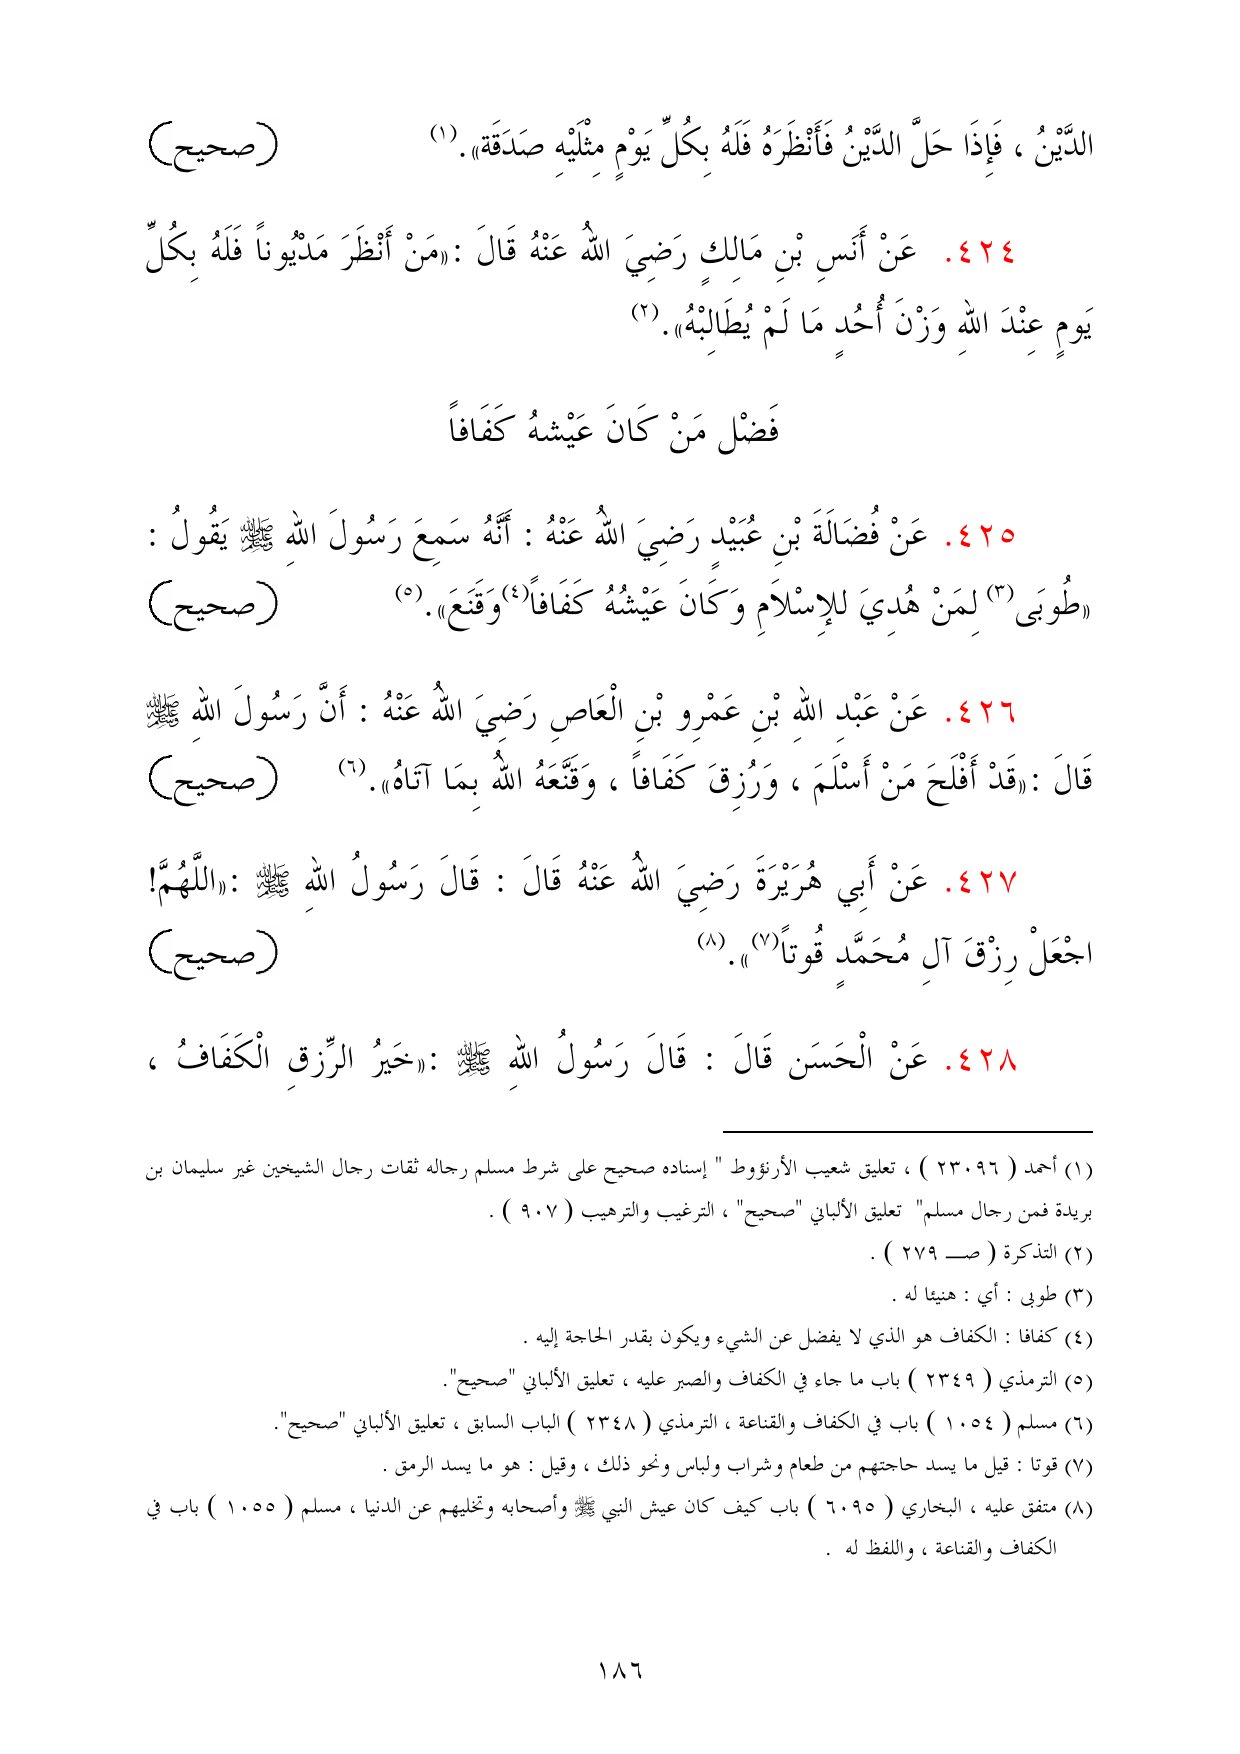 الدَّيْنُ ، فَإِذَا حَلَّ الدَّيْنُ فَأَنْظَرَهُ فَلَهُ بِكُلِّ يَوْمٍ مِثْلَيْهِ صَدَقَة».(١) (صحيح)
٤٢٤. عَنْ أَنَسِ بْنِ مَالِكٍ رَضِيَ اللهُ عَنْهُ قَالَ :«مَنْ أَنْظَرَ مَدْيُوناً فَلَهُ بِكُلِّ
يَومٍ عِنْدَ اللهِ وَزْنَ أُحُدٍ مَا لَمْ يُطَالِبْهُ».(٢)
فَضْل مَنْ كَانَ عَيْشهُ كَفَافاً
٤٢٥. عَنْ فُضَالَةَ بْنِ عُبَيْدٍ رَضِيَ اللهُ عَنْهُ : أَنَّهُ سَمِعَ رَسُولَ اللهِ ﷺ يَقُولُ :
«طُوبَى(٣) لِمَنْ هُدِيَ للإِسْلاَمِ وَكَانَ عَيْشُهُ كَفَافاً(٤)وَقَنَعَ».(٥) (صحيح)
٤٢٦. عَنْ عَبْدِ اللهِ بْنِ عَمْرِو بْنِ الْعَاصِ رَضِيَ اللهُ عَنْهُ : أَنَّ رَسُولَ اللهِ ﷺ
قَالَ :«قَدْ أَفْلَحَ مَنْ أَسْلَمَ ، وَرُزِقَ كَفَافاً ، وَقَنَّعَهُ اللهُ بِمَا آتَاهُ».(٦) (صحيح)
٤٢٧. عَنْ أَبِي هُرَيْرَةَ رَضِيَ اللهُ عَنْهُ قَالَ : قَالَ رَسُولُ اللهِ ﷺ :«اللَّهُمَّ!
اجْعَلْ رِزْقَ آلِ مُحَمَّدٍ قُوتاً(٧)».(٨) (صحيح)
٤٢٨. عَنْ الْحَسَن قَالَ : قَالَ رَسُولُ اللهِ ﷺ :«خَيرُ الرِّزقِ الْكَفَافُ ،
(١) أحمد ( ٢٣٠٩٦ ) ، تعليق شعيب الأرنؤوط " إسناده صحيح على شرط مسلم رجاله ثقات رجال الشيخين غير سليمان بن
بريدة فمن رجال مسلم" تعليق الألباني "صحيح" ، الترغيب والترهيب ( ٩٠٧ ) .
(٢) التذكرة ( صـــ ٢٧٩ ) .
(٣) طوبى : أي : هنيئا له .
(٤) كفافا : الكفاف هو الذي لا يفضل عن الشيء ويكون بقدر الحاجة إليه .
(٥) الترمذي ( ٢٣٤٩ ) باب ما جاء في الكفاف والصبر عليه ، تعليق الألباني "صحيح".
(٦) مسلم ( ١٠٥٤ ) باب في الكفاف والقناعة ، الترمذي ( ٢٣٤٨ ) الباب السابق ، تعليق الألباني "صحيح".
(٧) قوتا : قيل ما يسد حاجتهم من طعام وشراب ولباس ونحو ذلك ، وقيل : هو ما يسد الرمق .
(٨) متفق عليه ، البخاري ( ٦٠٩٥ ) باب كيف كان عيش النبي ﷺ وأصحابه وتخليهم عن الدنيا ، مسلم ( ١٠٥٥ ) باب في
الكفاف والقناعة ، واللفظ له .
١٨٦